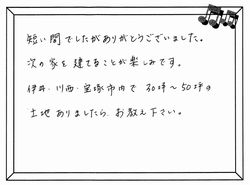 短い間でしたがありがとうございました。
次の家を建てることが楽しみです。
伊丹・川西・宝塚市内で 30坪〜50坪の
土地ありましたら、お教え下さい。